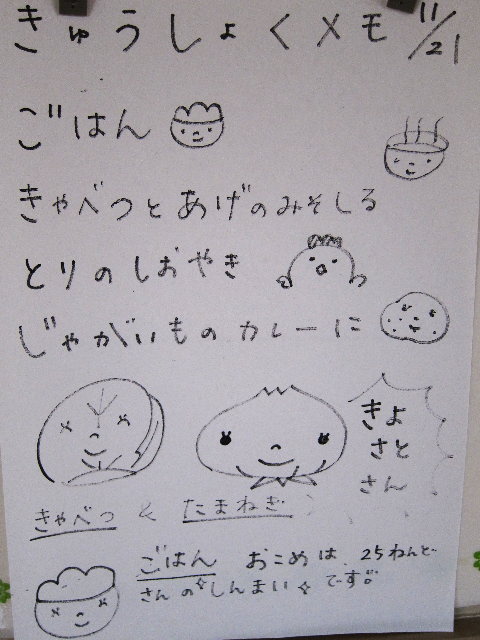 きゅうしょくメモ 11/21
ごはん
きゃべつとあげのみそしる
とりのしおやき
じゃがいものカレーに
きよ
さと
さん
きゃべつ & たまねぎ
ごはん おこめは、25ねんど
さんの しんまい です。